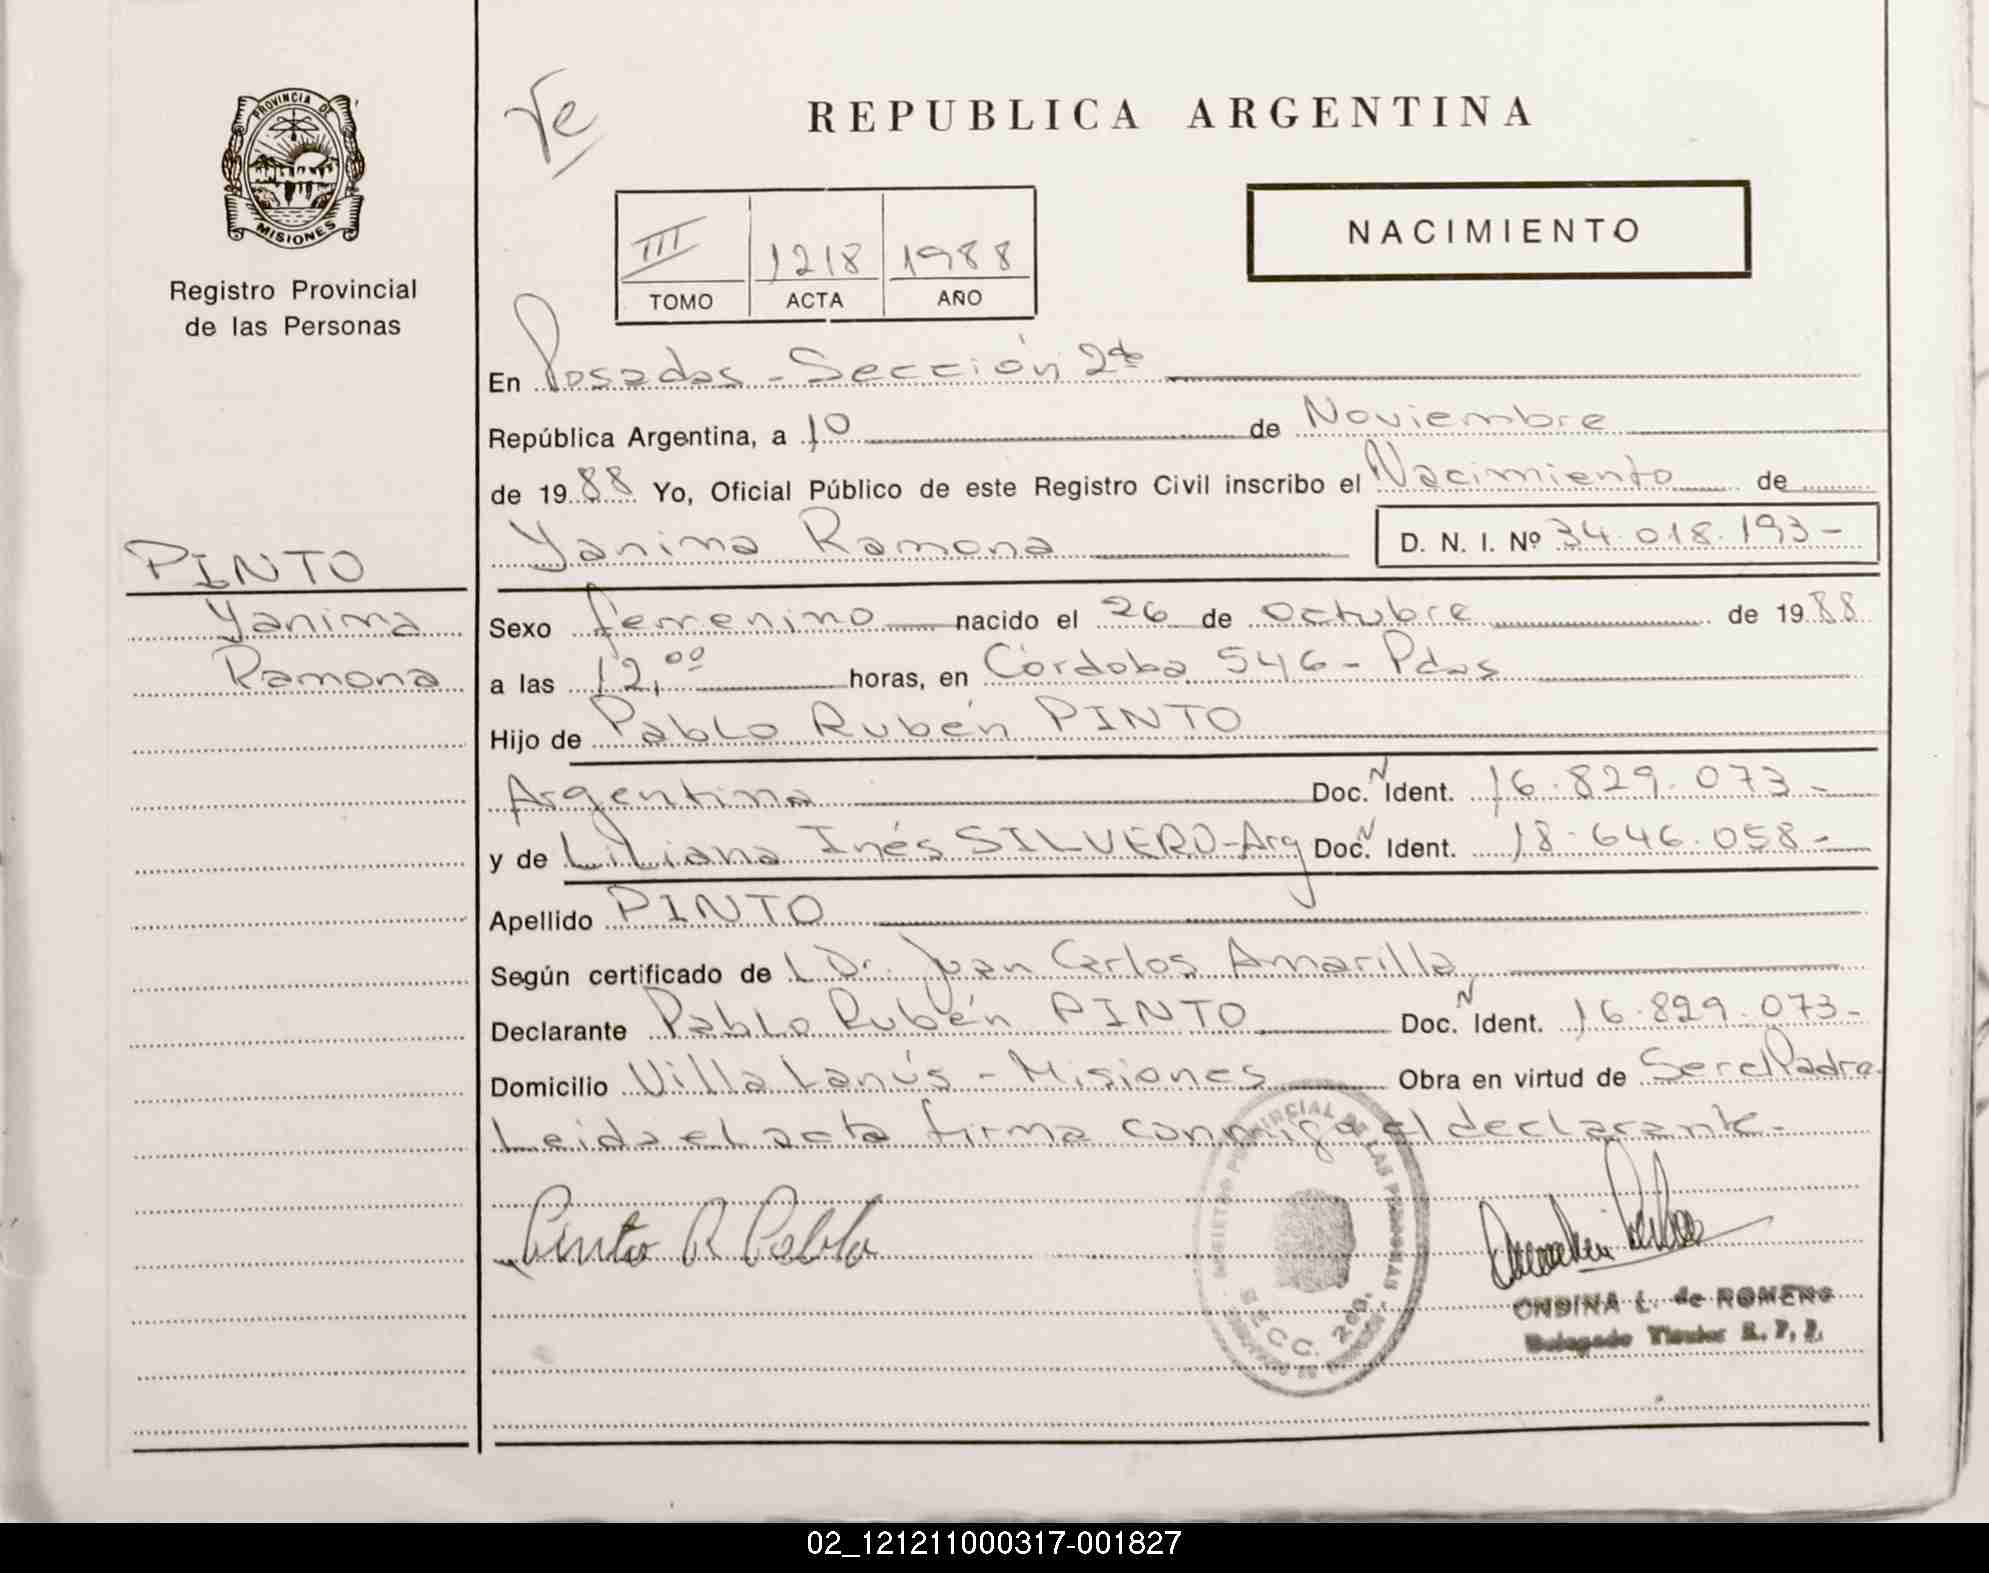 PROVINCIA DE
MISIONES
Registro Provincial
de las Personas
PINTO
Yanina
Ramona
Te
REPUBLICA ARGENTINA
III 1218 1988
TOMO ACTA AÑO
NACIMIENTO
En Posadas - Sección 2da
República Argentina, a 10 de Noviembre
de 1988 Yo, Oficial Público de este Registro Civil inscribo el Nacimiento de
Yanina Ramona D. N. I. Nº 34.018.193-
Sexo femenino nacido el 26 de octubre de 1988
a las 12,00 horas, en Córdoba 546 - Pdas
Hijo de Pablo Rubén PINTO
Argentina Doc. N Ident. 16.829.073-
y de Liliana Inés SILVERO-Arg Doc. N Ident. 18.646.058-
Apellido PINTO
Según certificado de L Dr. Juan Carlos Amarilla
Declarante Pablo Rubén PINTO Doc. N Ident. 16.829.073-
Domicilio Villa Lanús - Misiones Obra en virtud de Ser el Padre
Leida el acta firma conmigo el declarante-
Pinto R Pablo
ONDINA L. de ROMERO
Delegado Titular R. P. P.
02_121211000317-001827